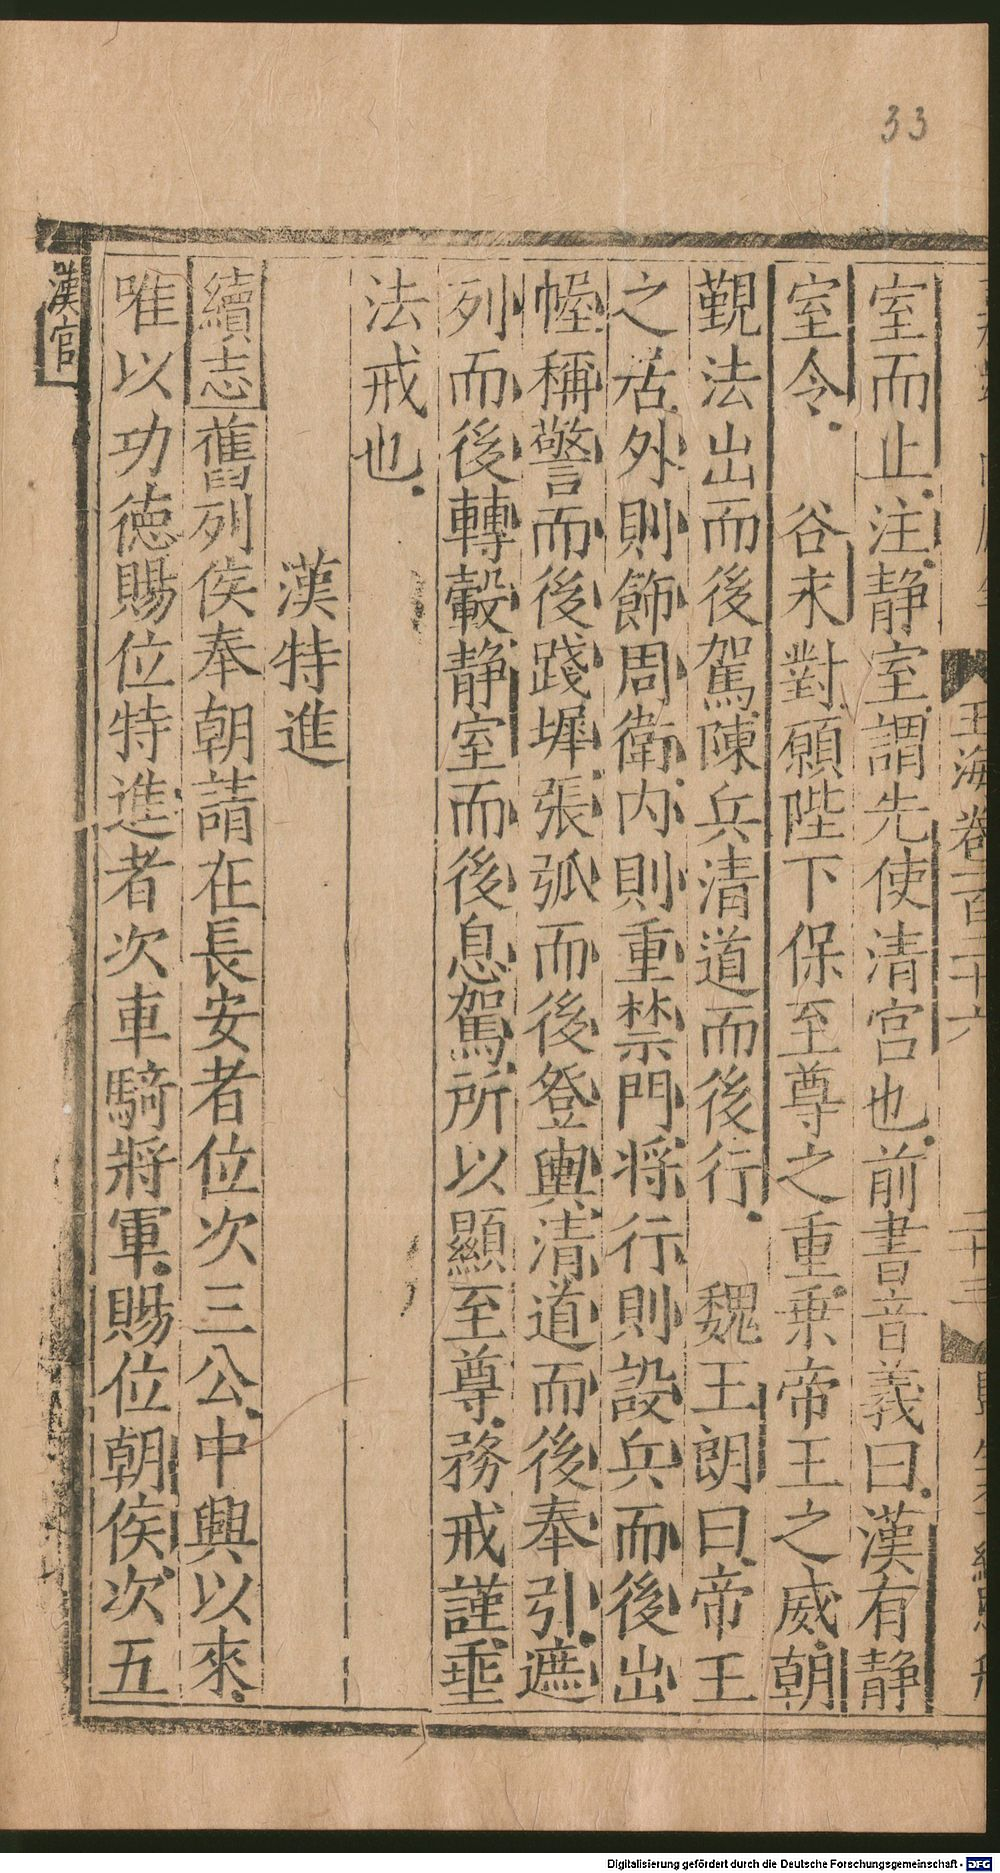 33
玉海卷一百二十六
室而止注静室謂先使清宫也前書音義曰漢有静
室令 谷永對願陛下保至尊之重乗帝王之威朝
覲法出而後駕陳兵清道而後行 魏王朗曰帝王
之居外則飾周衛内則重禁門将行則設兵而後出
幄稱警而後踐墀張弧而後登輿清道而後奉引遮
列而後轉轂静室而後息駕所以顯至尊務戒謹垂
法戒也
漢特進
續志舊列侯奉朝請在長安者位次三公中興以來
唯以功德賜位特進者次車騎將軍賜位朝侯次五
漢官
Digitalisierung gefördert durch die Deutsche Forschungsgemeinschaft - DFG